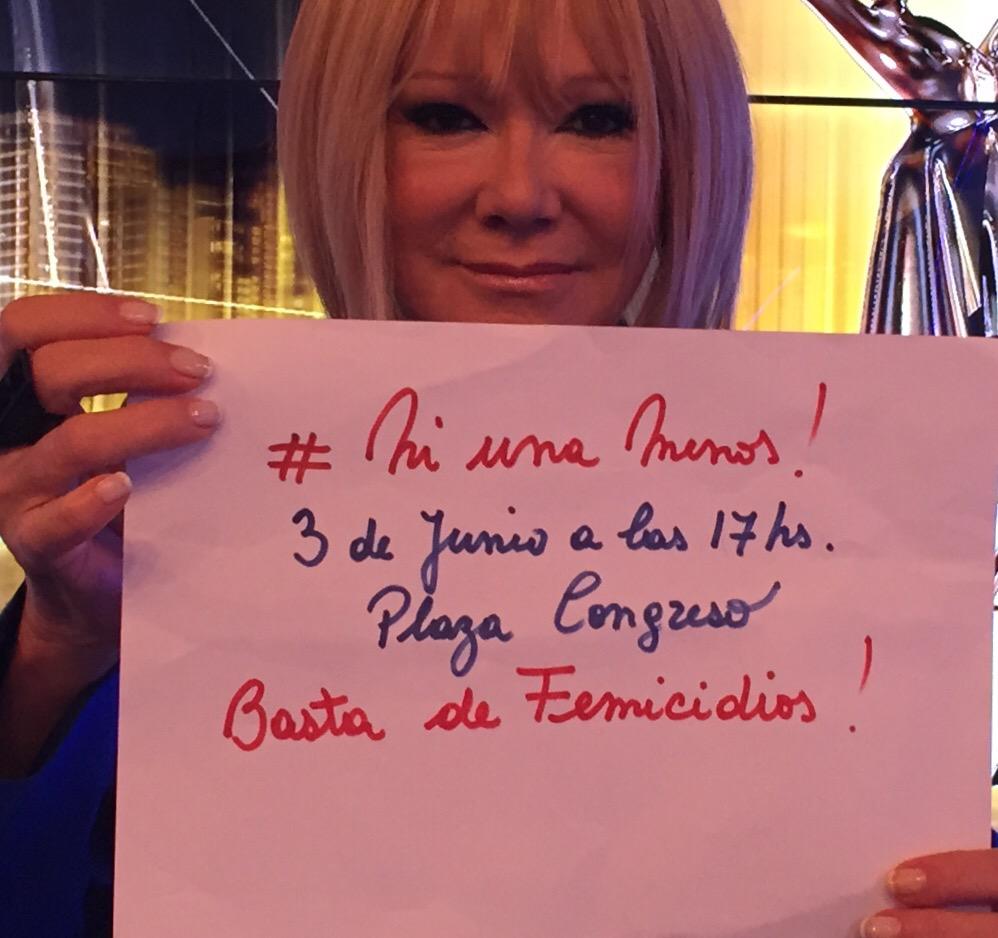 # Ni una Menos!
3 de Junio a las 17 hs.
Plaza Congreso
Basta de Femicidios!